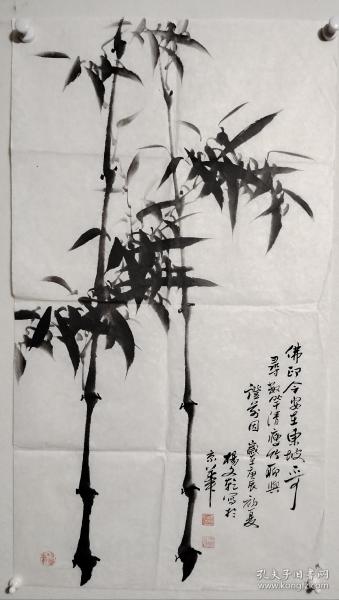 佛印今安在東坡不可
尋敬學清癯竹聊與
證前因 歲在庚辰初夏
楊文乾寫於
京華
孔夫子旧书网